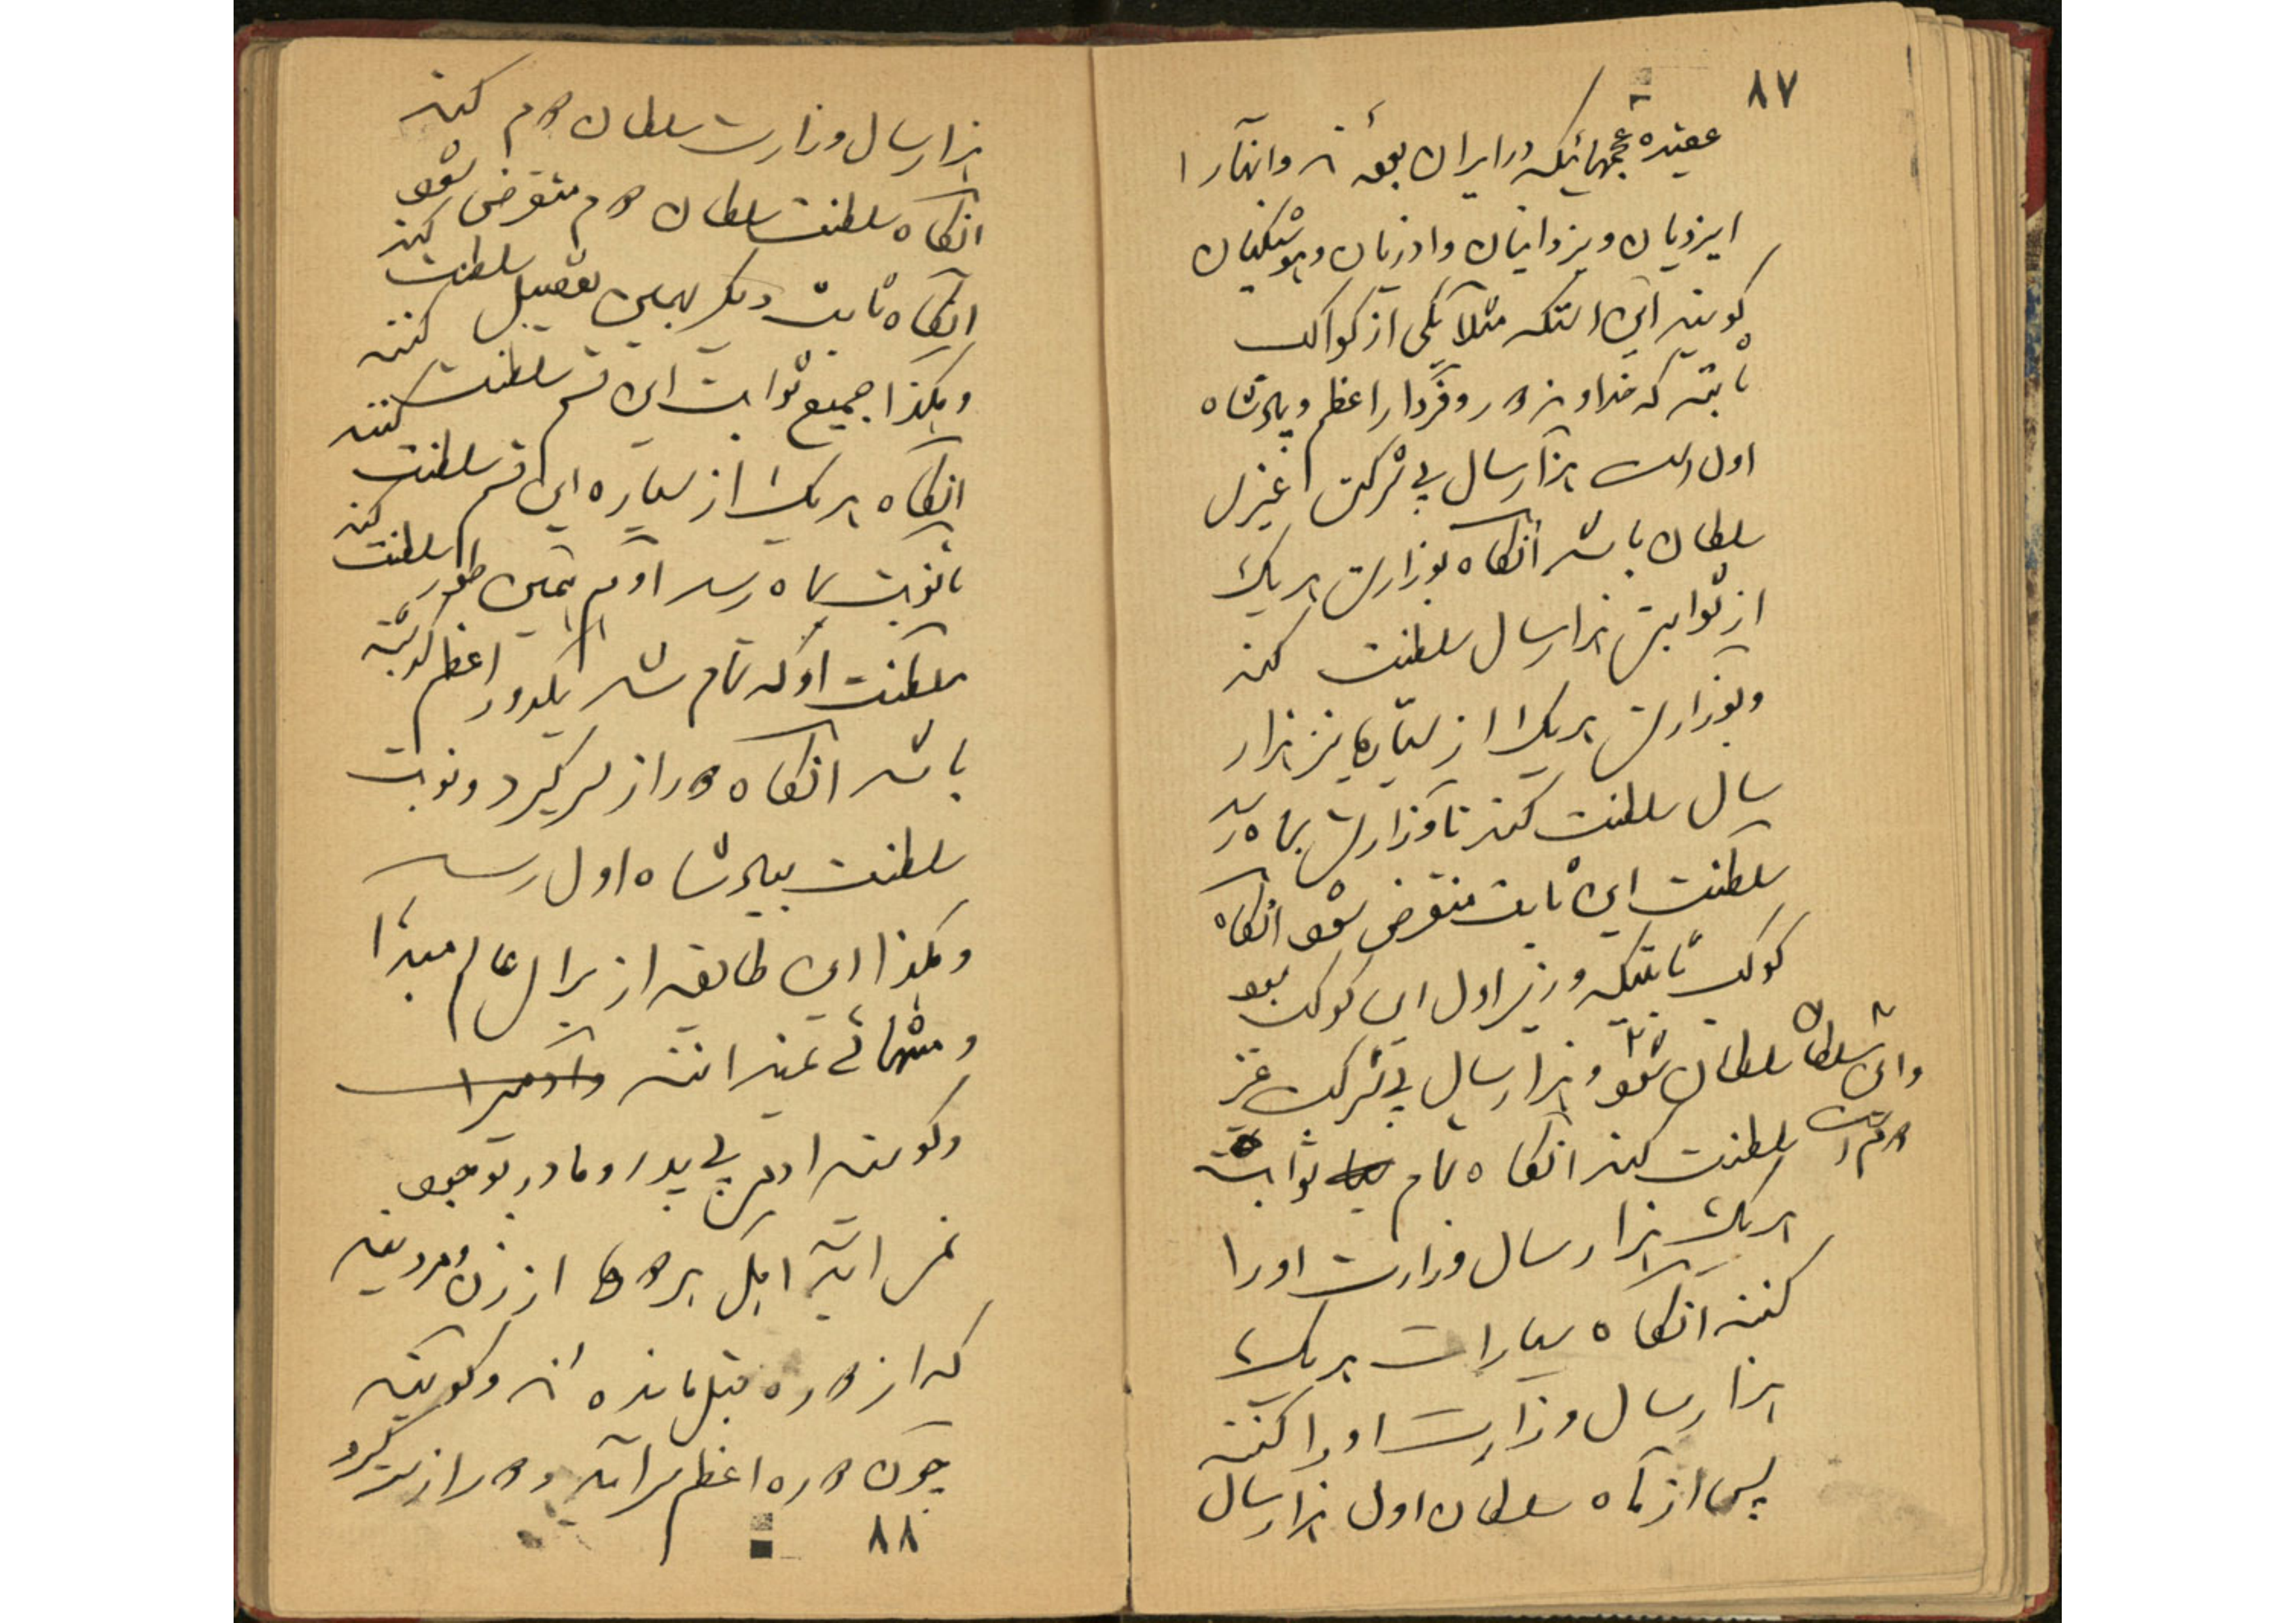 ۸۷
عقیده عجمهائیکه در ایران بوده‌اند و آنها را
ایزدیان و یزدانیان و آذریان و هوشنگیان
گویند این استکه مثلاً یکی از کواکب
ثابته که خداوند دور و فردار اعظم و پادشاه
اول است هزار سال بی شرکت غیری
سلطان باشد آنگاه بوزارت هر یک
از ثوابت هزار سال سلطنت کند
و بوزارت هر یک از سیاره‌ها نیز هزار
سال سلطنت کند تا وزارت بماه رسد
سلطنت این ثابت منقرض شود آنگاه
کوکب ثابتیکه وزیر اول این کوکب بود
سلطان شود و هزار سال بی شرکت غیر
و این سلطان سلطان دوم است
سلطنت کند آنگاه تمام ثوابت
هر یک هزار سال وزارت او را
کنند آنگاه سیارات هر یک
هزار سال وزارت او را کنند
پس از ماه سلطان اول هزار سال
هزار سال وزارت سلطان دوم کند
آنگاه سلطنت سلطان دوم منقرض شود
آنگاه ثابت دیگر بهمین تفصیل سلطنت کند
و هکذا جمیع ثوابت این قسم سلطنت کنند
آنگاه هر یک از سیاره این قسم سلطنت کنند
تا نوبت بماه رسد او هم بهمین طور سلطنت کند
سلطنت او که تمام شد یکدور اعظم گذشته
باشد آنگاه دور از سر گیرد و نوبت
سلطنت بپادشاه اول رسد
و هکذا این طایفه از برای عالم مبدأ
و منتهائی نمیدانند
و گویند آدمی بی پدر و مادر بوجود
نمی‌آید اهل هر دوره از زن و مردیند
که از دوره قبل مانده‌اند و گویند
چون دوره اعظم سر آید و دور از سر گیرد
۸۸